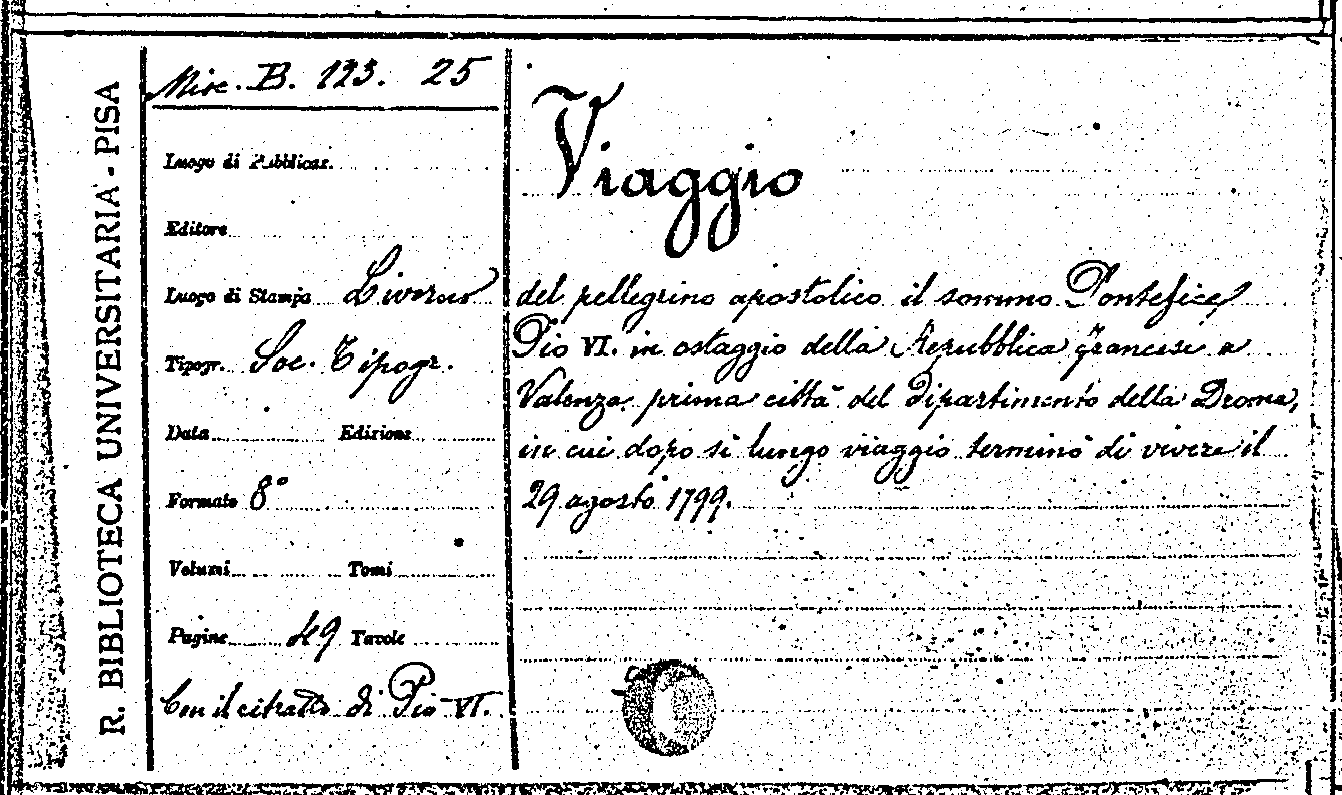 R. BIBLIOTECA UNIVERSITARIA - PISA
Misc. B. 123. 25
Luogo di Pubblicaz.
Editore
Luogo di Stampa Livorno
Tipogr. Soc. Tipogr.
Data Edizione
Formato 8°
Volumi Tomi
Pagine 49 Tavole
Con il ritratto di Pio VI.
Viaggio
del pellegrino apostolico il sommo Pontefice
Pio VI. in ostaggio della Repubblica francese a
Valenza prima città del Dipartimento della Droma,
in cui dopo sì lungo viaggio terminò di vivere il
29 agosto 1799.